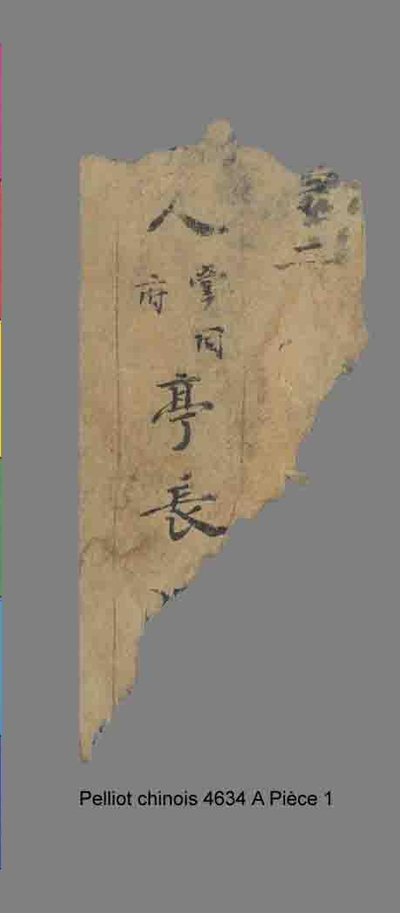 二
人
掌同
府
亭長
Pelliot chinois 4634 A Pièce 1